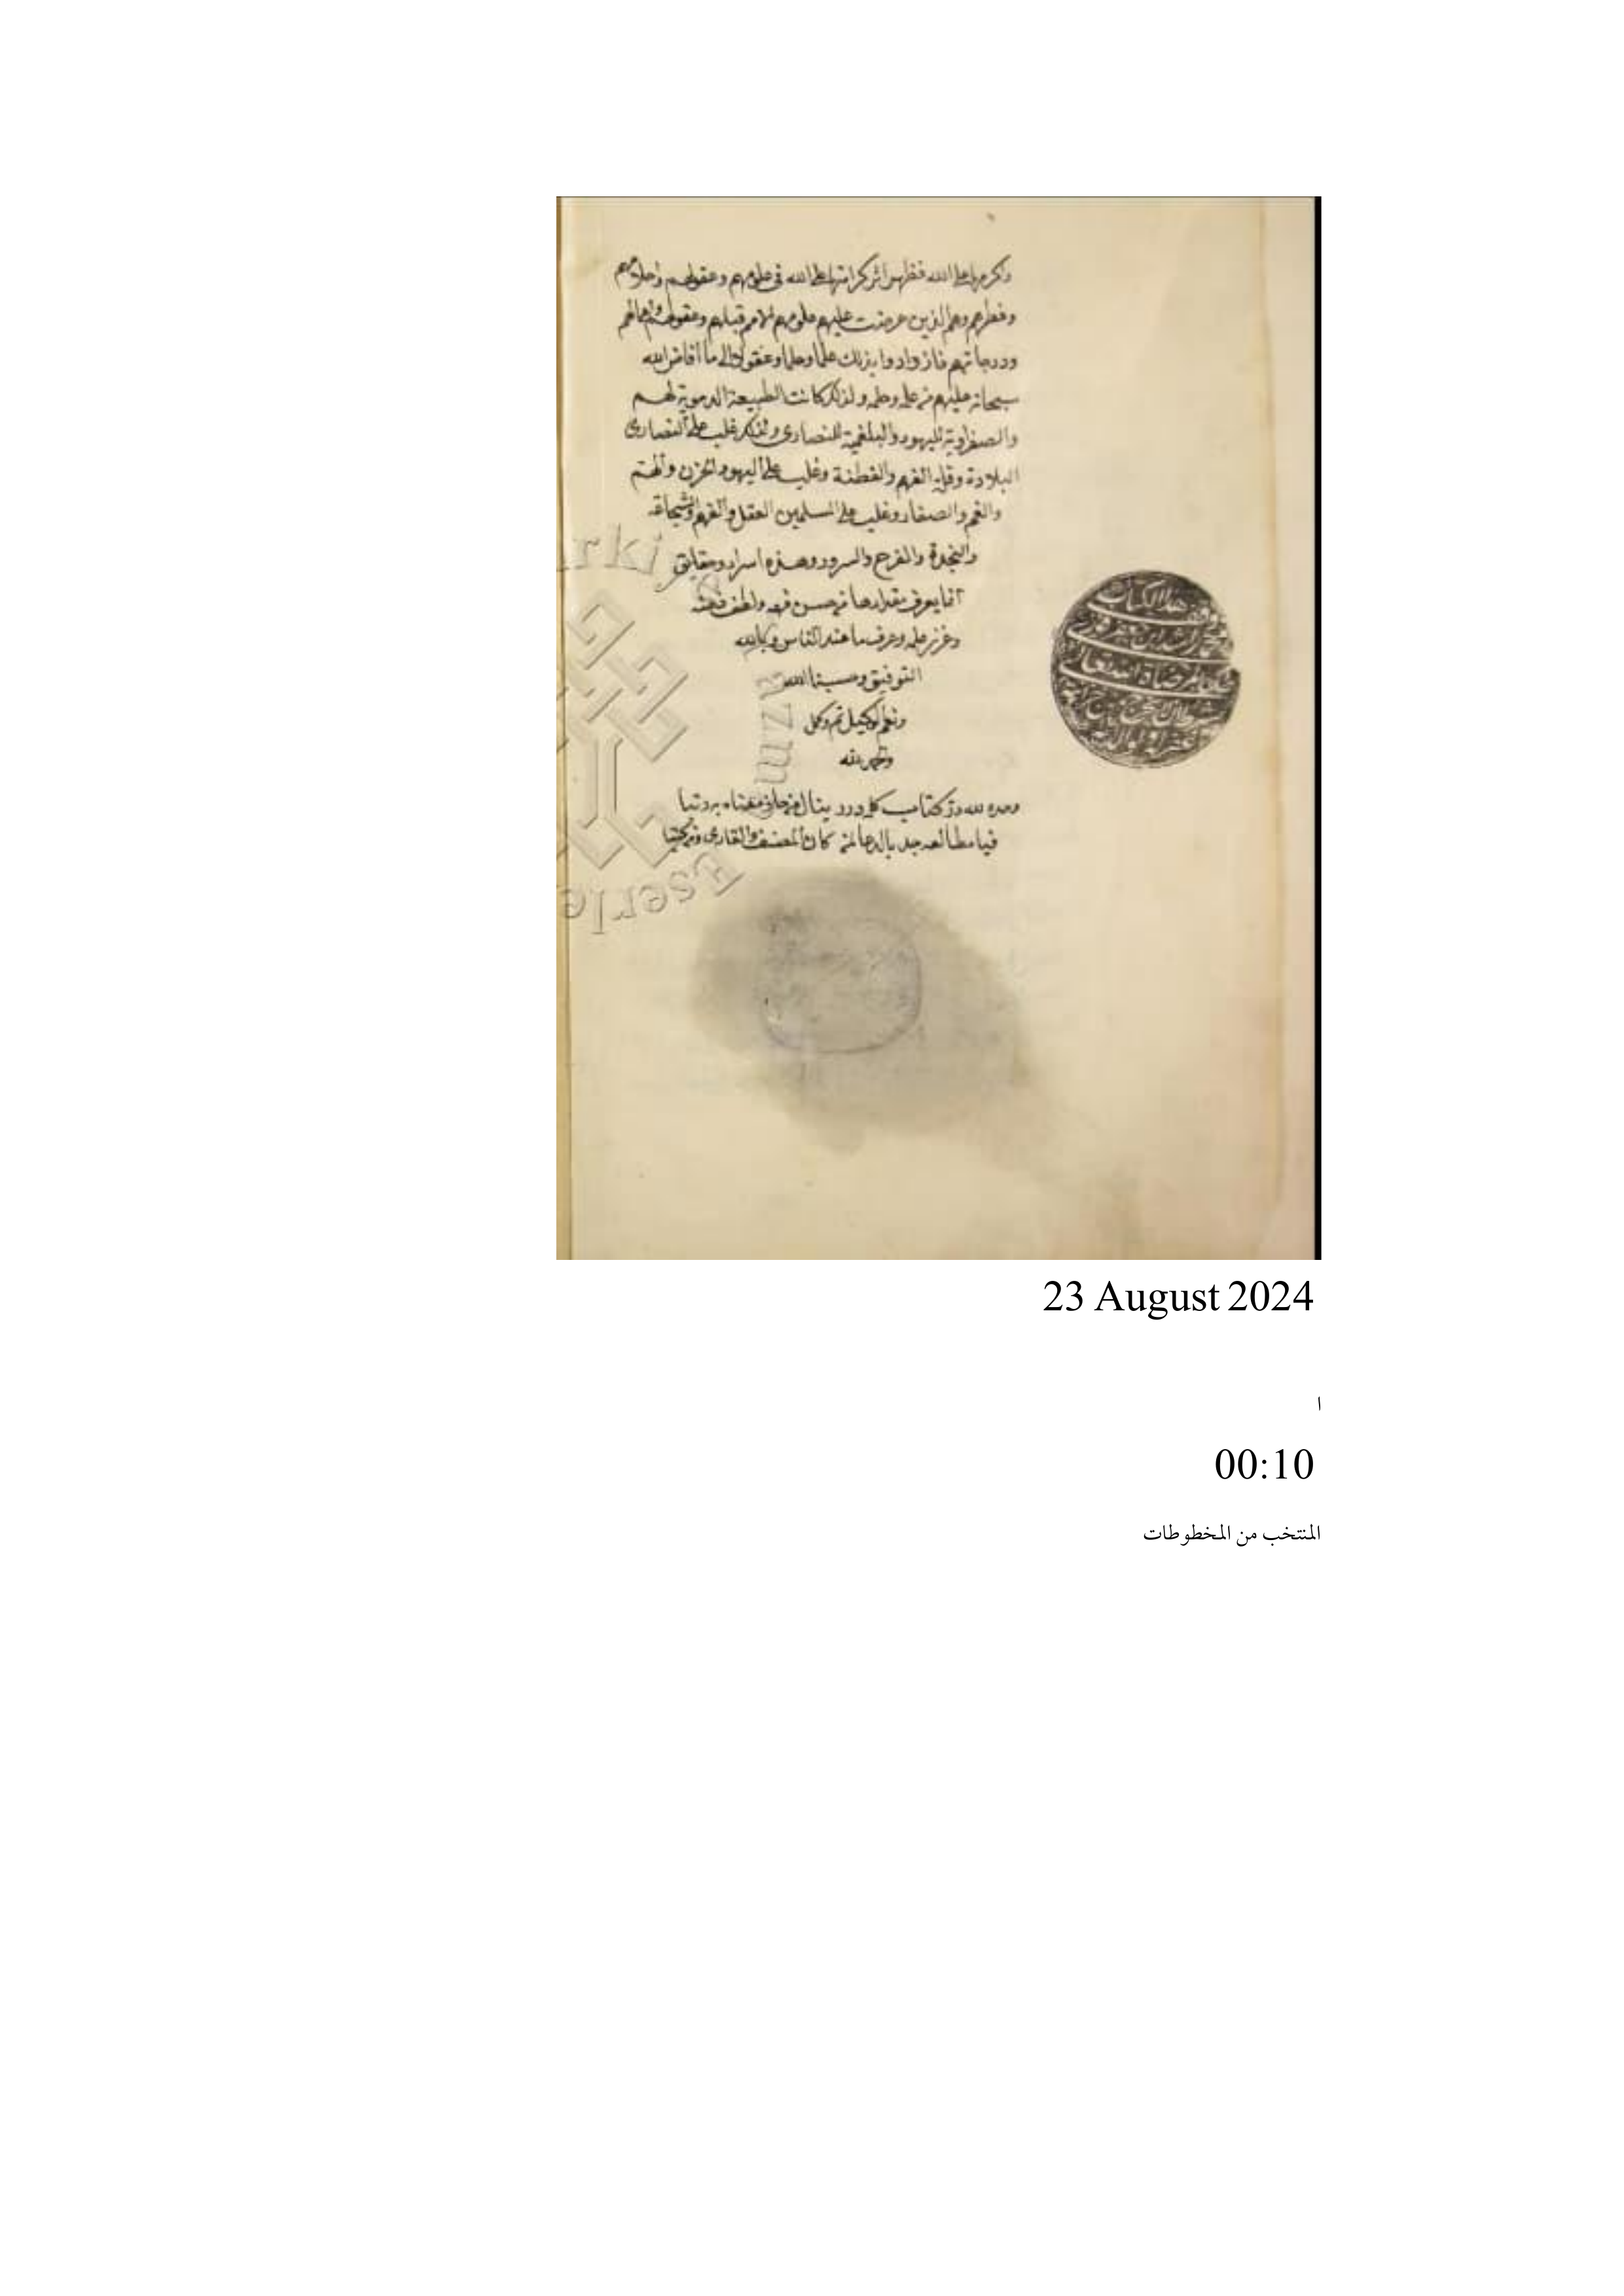 واكرمها على الله فظهر اثر كرامتها على الله فى علومهم وعقولهم واحلامهم
وفطرهم وهم الذين عرضت عليهم علوم الامم قبلهم وعقولهم واعمالهم
ودرجاتهم فازدادوا بذلك علما وحلما وعقولا الى ما افاض الله
سبحانه عليهم من علمه وحلمه ولذلك كانت الطبيعة الدموية لهم
والصفراوية لليهود والبلغمية للنصارى ولذلك غلب على النصارى
البلادة وقلة الفهم والفطنة وغلب على اليهود الحزن والهم
والغم والصغار وغلب على المسلمين العقل والفهم والشجاعة
والنجدة والفرح والسرور وهذه اسرار وحقايق
انما يعرف مقدارها من حسن فهمه ولطف ذهنه
وغزر علمه وعرف ما عند الناس وبالله
التوفيق وحسبنا الله
ونعم الوكيل تم وكمل
والحمد لله
وحده لله در كتاب
فيا مطالعه جد بالدعا لمن كان المصنف والقارى ومن كتبا
هذا الكتاب
23 August 2024
ا
00:10
المنتخب من المخطوطات